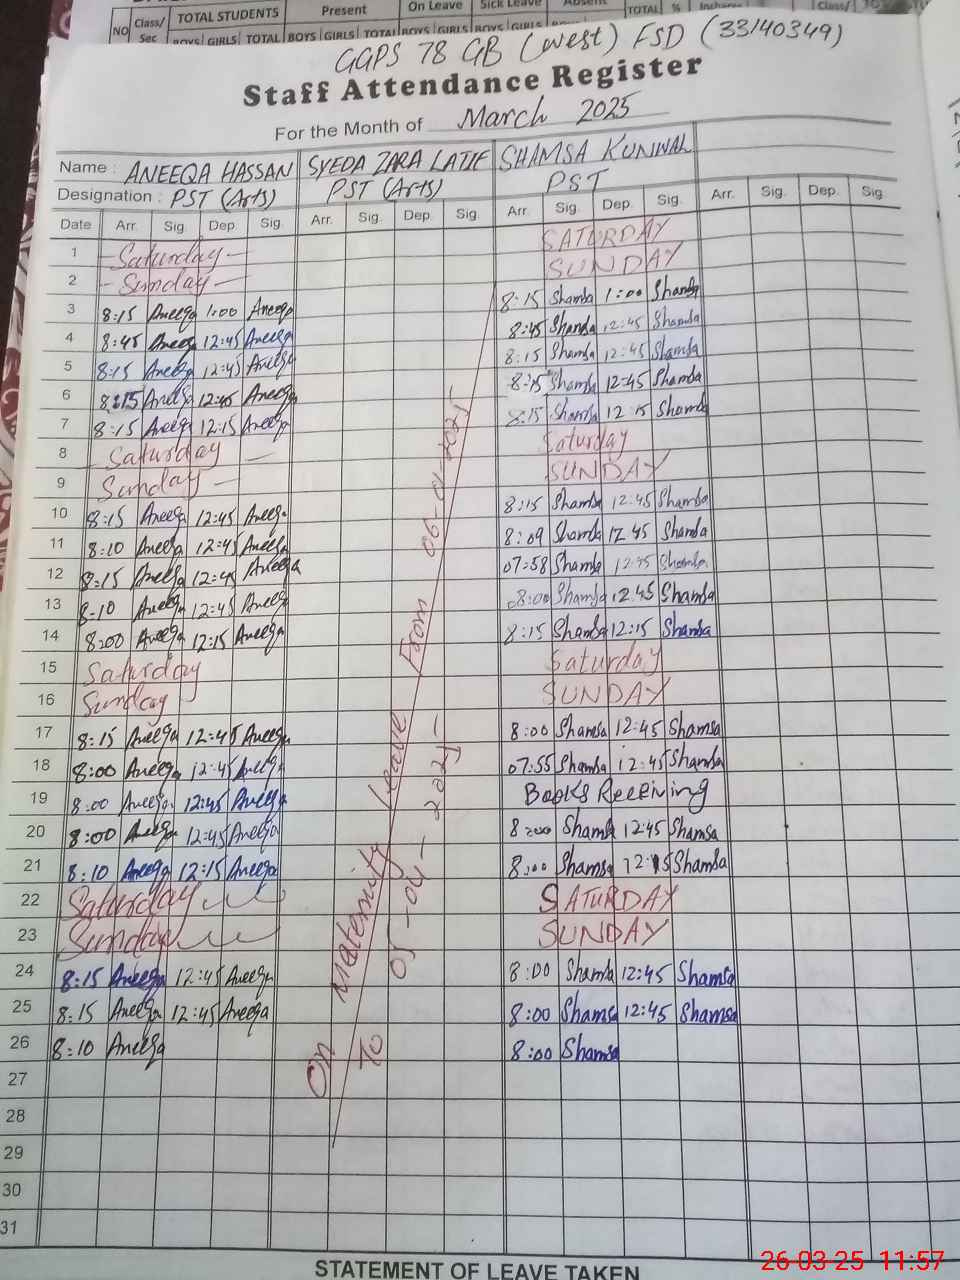 NO Class/ Sec TOTAL STUDENTS Present On Leave Sick Leave Absent TOTAL %
BOYS GIRLS TOTAL BOYS GIRLS TOTAL BOYS GIRLS BOYS GIRLS
GGPS 78 GB (West) FSD (33140349)
Staff Attendance Register
For the Month of March 2025
Name : ANEEQA HASSAN SYEDA ZARA LATIF SHAMSA KUNWAL
Designation : PST (Arts) PST (Arts) PST
Date Arr. Sig. Dep. Sig. Arr. Sig. Dep. Sig. Arr. Sig. Dep. Sig. Arr. Sig. Dep. Sig.
1 Saturday SATURDAY
2 Sunday SUNDAY
3 8:15 Aneeqa 1:00 Aneeqa 8:15 Shamsa 1:00 Shamsa
4 8:45 Aneeqa 12:45 Aneeqa 8:45 Shamsa 12:45 Shamsa
5 8:15 Aneeqa 12:45 Aneeqa 8:15 Shamsa 12:45 Shamsa
6 8:15 Aneeqa 12:45 Aneeqa 8:15 Shamsa 12:45 Shamsa
7 8:15 Aneeqa 12:15 Aneeqa 8:15 Shamsa 12:15 Shamsa
8 Saturday Saturday
9 Sunday SUNDAY
10 8:15 Aneeqa 12:45 Aneeqa 8:15 Shamsa 12:45 Shamsa
11 8:10 Aneeqa 12:45 Aneeqa 8:09 Shamsa 12:45 Shamsa
12 8:15 Aneeqa 12:45 Aneeqa 07:58 Shamsa 12:45 Shamsa
13 8:10 Aneeqa 12:45 Aneeqa 08:00 Shamsa 12:45 Shamsa
14 8:00 Aneeqa 12:15 Aneeqa 8:15 Shamsa 12:15 Shamsa
15 Saturday Saturday
16 Sunday SUNDAY
17 8:15 Aneeqa 12:45 Aneeqa 8:00 Shamsa 12:45 Shamsa
18 8:00 Aneeqa 12:45 Aneeqa 07:55 Shamsa 12:45 Shamsa
19 8:00 Aneeqa 12:45 Aneeqa Books Receiving
20 8:00 Aneeqa 12:45 Aneeqa 8:00 Shamsa 12:45 Shamsa
21 8:10 Aneeqa 12:15 Aneeqa 8:00 Shamsa 12:15 Shamsa
22 Saturday SATURDAY
23 Sunday SUNDAY
24 8:15 Aneeqa 12:45 Aneeqa 8:00 Shamsa 12:45 Shamsa
25 8:15 Aneeqa 12:45 Aneeqa 8:00 Shamsa 12:45 Shamsa
26 8:10 Aneeqa 8:00 Shamsa
27
28
29
30
31
On Maternity Leave From 06-01-2025
To 05-04-2025
STATEMENT OF LEAVE TAKEN
26-03-25 11:57